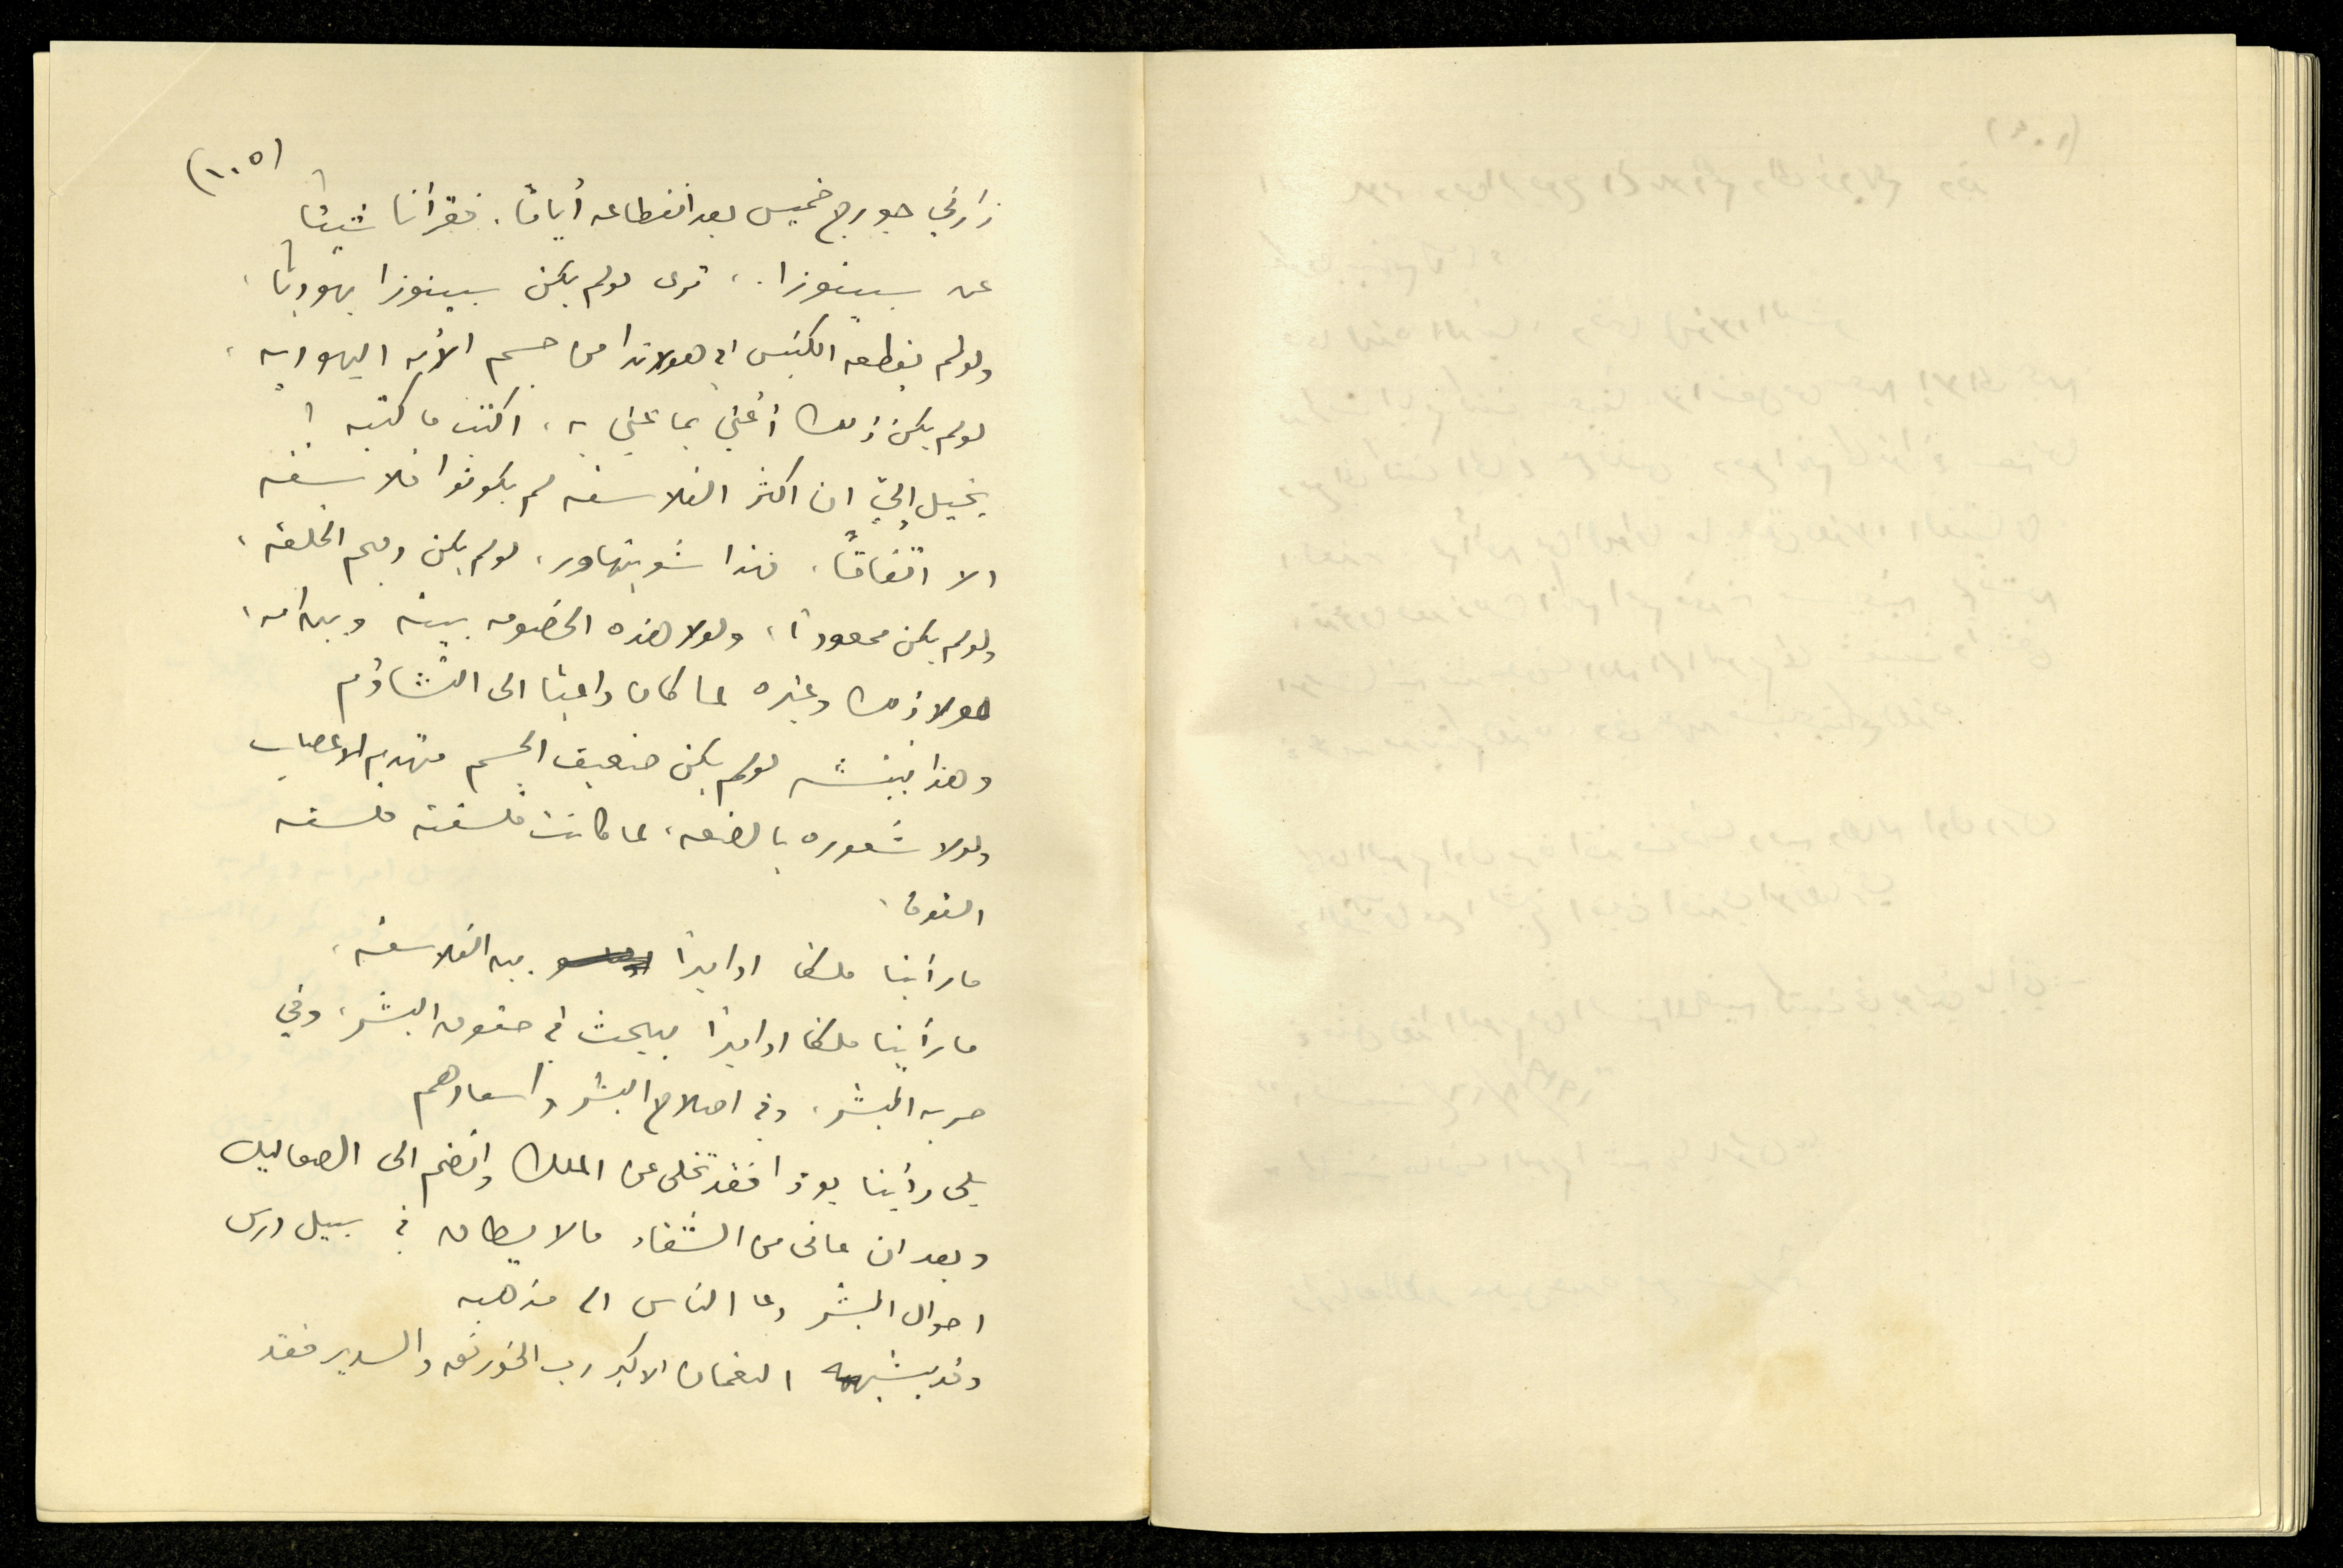 (١٠٥)
زارني جورج خميس بعد انقطاعه أيامًا. فقرأنا شيئا
عن سبينوزا.، ترى لو لم يكن سبينوزا يهوديًا،
ولو لم يقطعه الكنيس في هولاندا من جسم الأمة اليهودية،
لو لم يكن ذلك أعني بما عني به، اكتب ما كتبه !
يخيل إليّ ان اكثر الفلاسفه لم يكونوا فلاسفه
الا اتفاقًا. فهذا شوبنهاور، لو لم يكن دميم الخلقه،
ولو لم يكن ممعودا، ولولا هذه الخصومه بينه وبين امه،
لولا ذلك وغيره لما كان داعيا الى التشاؤم
وهذا نيتشه لو لم يكن ضعيف الجسم متهدم الاعصاب
ولولا شعوره بالضعه، لما كانت فلسفته فلسفه
القوة،
ما رأينا ملكا او اميرًا بين الفلاسفه،
ما رأينا ملكا او اميرًا يبحث في حقوق البشر، وفي
حريه البشر، وفي اصلاح البشر واسعادهم
بلى رأينا بوذا فقد تخلى عن الملك وانضم الى الصعاليك
وبعد ان عانى من الشقاء ما لا يطاق في سبيل درس
احوال البشر دعا الناس الى مذهبه
وقد يشبهه النعمان الاكبر رب الخورنق والسدير فقد